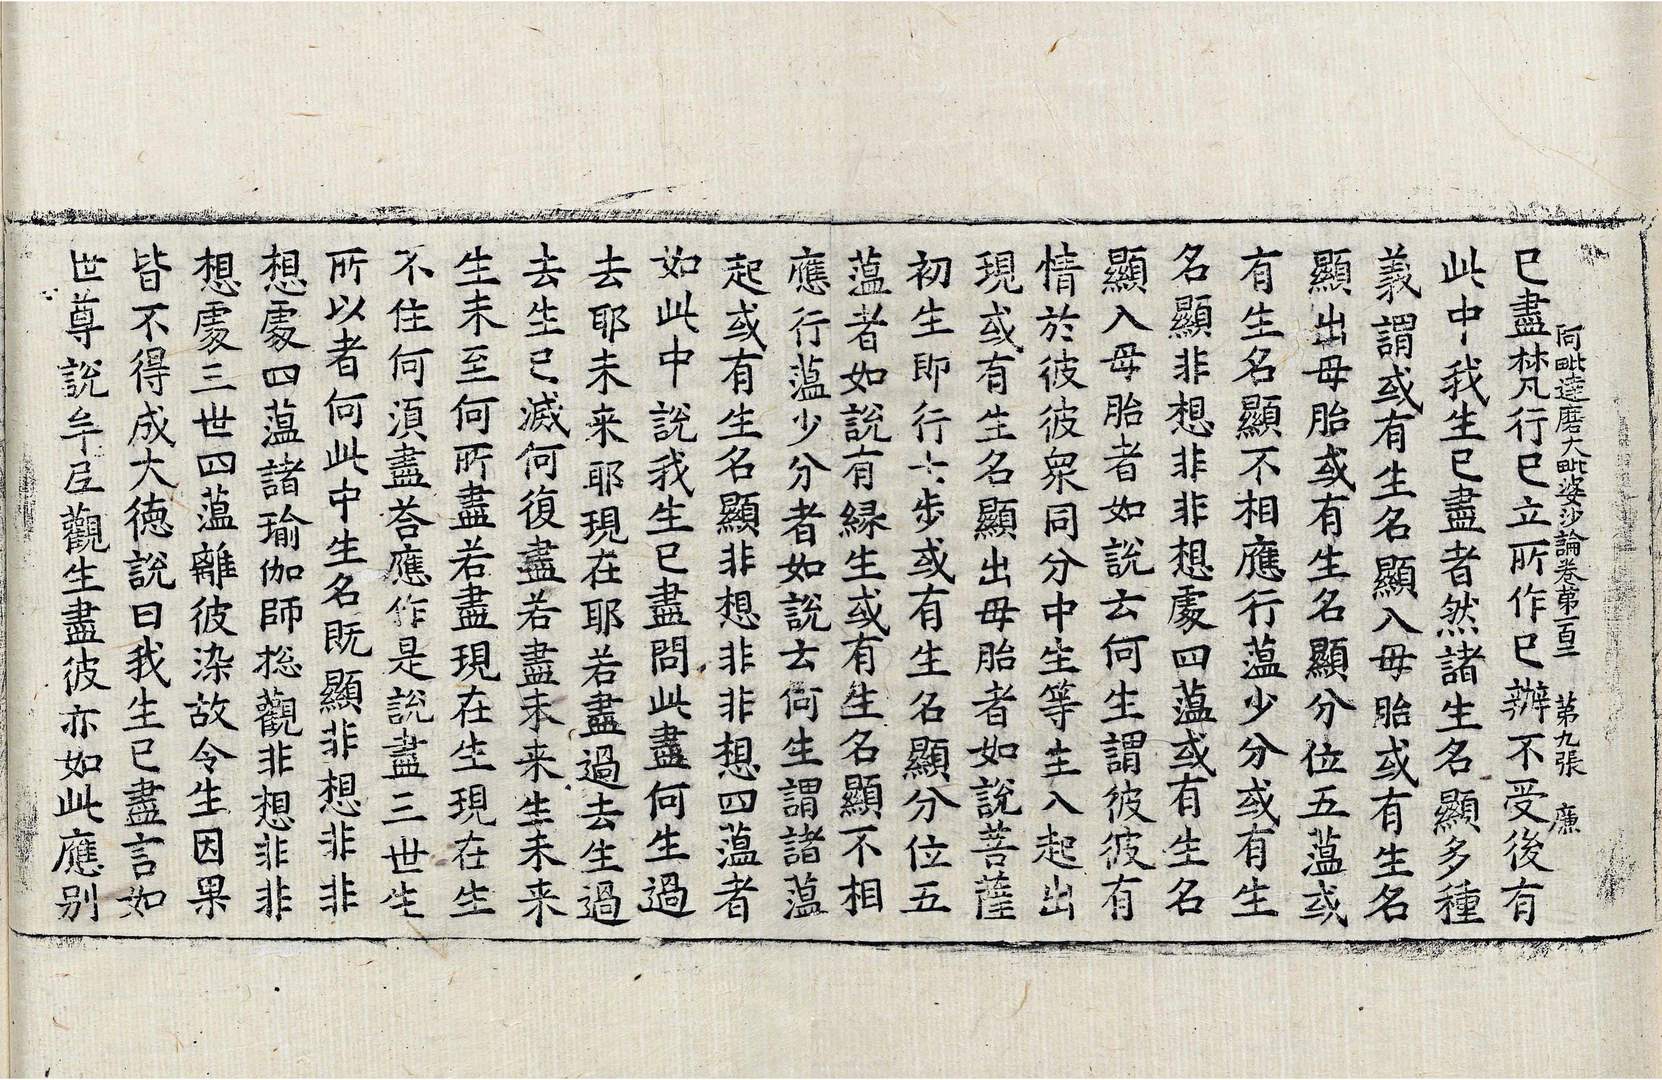 阿毗達磨大毗婆沙論卷第一百二　第九張　廉
已盡梵行已立所作已辦不受後有
此中我生已盡者然諸生名顯多種
義謂或有生名顯入母胎或有生名
顯出母胎或有生名顯分位五蕰或
有生名顯不相應行蕰少分或有生
名顯非想非非想處四蕰或有生名
顯入母胎者如說云何生謂彼彼有
情於彼彼衆同分中生等生入起出
現或有生名顯出母胎者如說菩薩
初生即行七步或有生名顯分位五
蕰者如說有緣生或有生名顯不相
應行蕰少分者如說云何生謂諸蕰
起或有生名顯非想非非想四蕰者
如此中說我生已盡問此盡何生過
去耶未來耶現在耶若盡過去生過
去生已滅何復盡若盡未來生未來
生未至何所盡若盡現在生現在生
不住何須盡荅應作是說盡三世生
所以者何此中生名既顯非想非非
想處四蕰諸瑜伽師揔觀非想非非
想處三世四蕰離彼染故令生因果
皆不得成大德說曰我生已盡言如
世尊說牟尼觀生盡彼亦如此應別